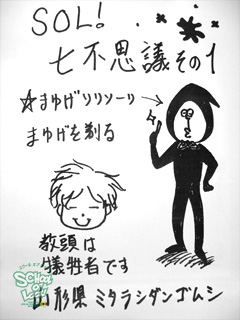 SOL!
七不思議その1
☆まゆげソリソーリ→
まゆげを剃る
教頭は
犠牲者です
SCHOOL OF LOCK!
山形県 ミタラシダンゴムシ